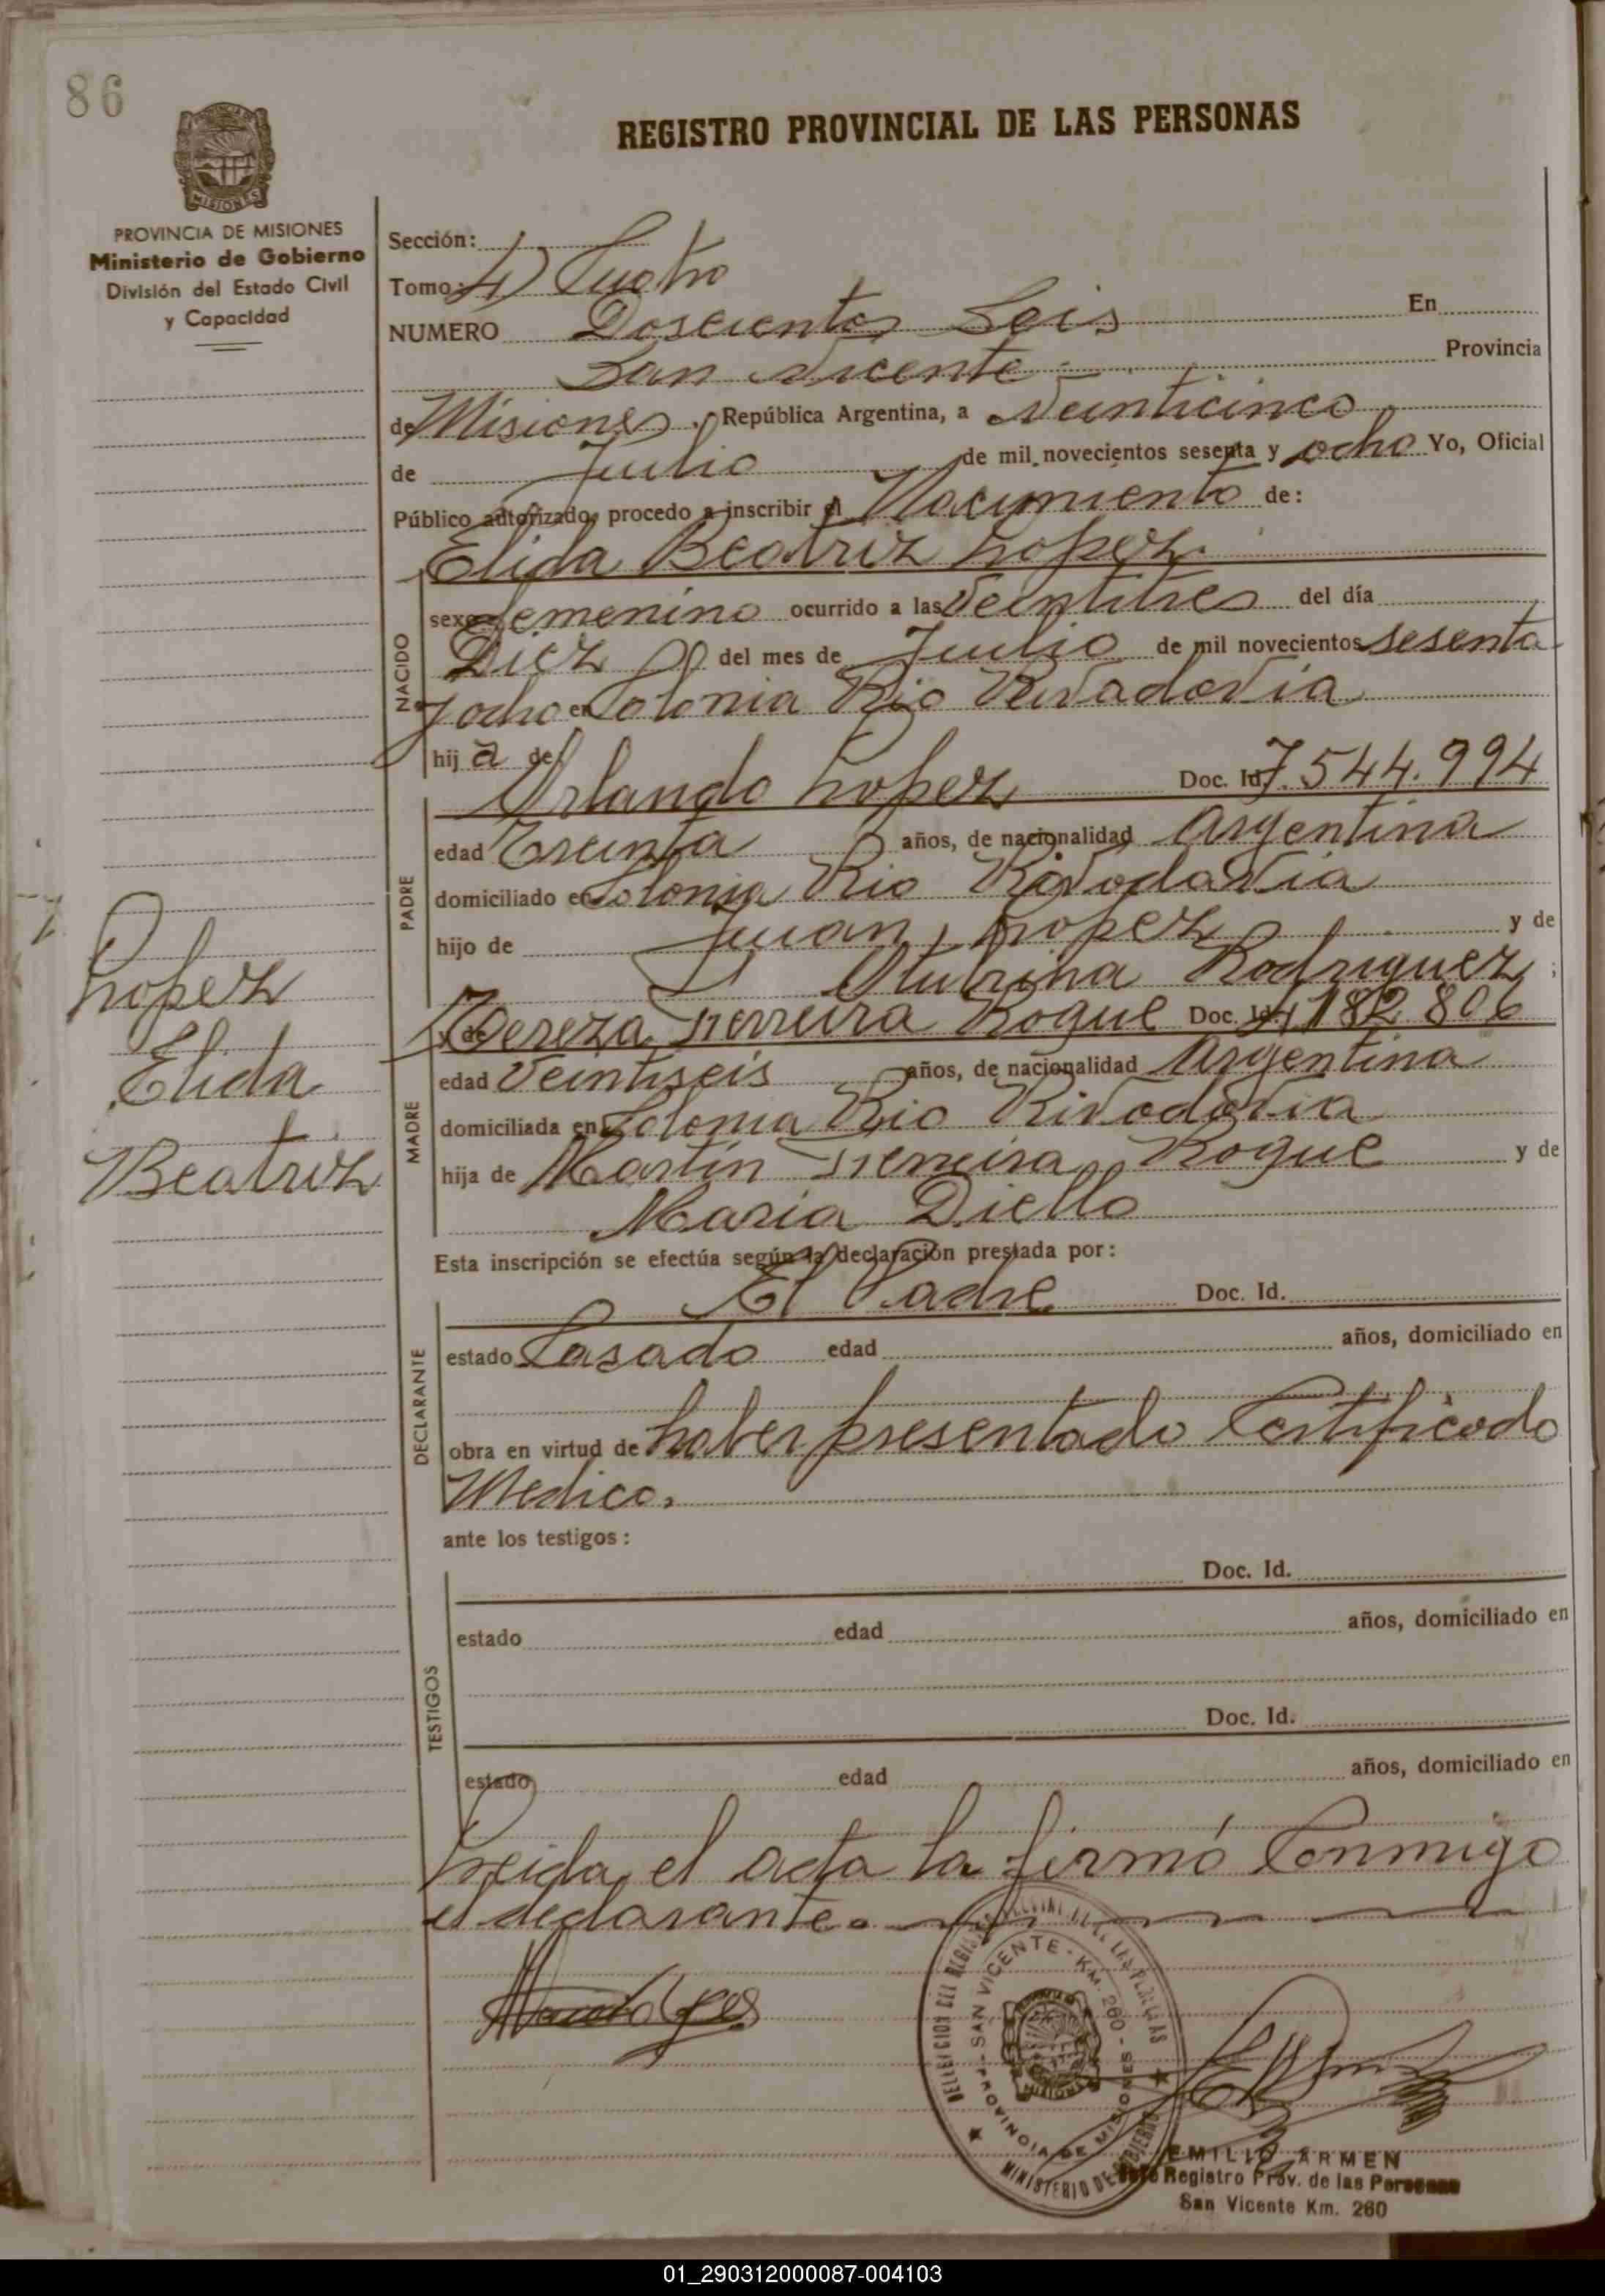 86
REGISTRO PROVINCIAL DE LAS PERSONAS
PROVINCIA DE MISIONES
Ministerio de Gobierno
División del Estado Civil
y Capacidad
Sección:
Tomo: 4) Cuatro
NUMERO Doscientos Seis En
San Vicente Provincia
de Misiones República Argentina, a Veinticinco
de Julio de mil novecientos sesenta y ocho Yo, Oficial
Público autorizado, procedo a inscribir el Nacimiento de:
Elida Beatriz Lopez.
NACIDO
sexo femenino ocurrido a las Veintitres del día
Diez del mes de Julio de mil novecientos sesenta
y ocho en Colonia Rio Rivadavia
hij a de
PADRE
Orlando Lopez Doc. Id. 7.544.994
edad Treinta años, de nacionalidad Argentina
domiciliado en Colonia Rio Rivadavia
hijo de Juan Lopez y de
Rodriguez;
MADRE
y de Tereza Ferreira Roque Doc. Id. 182 806
edad Veintiseis años, de nacionalidad Argentina
domiciliada en Colonia Rio Rivadavia
hija de Martin Ferreira Roque y de
Maria Diello
Lopez
Elida
Beatriz
Esta inscripción se efectúa según la declaración prestada por:
DECLARANTE
El Padre Doc. Id.
estado Casado edad años, domiciliado en
obra en virtud de haber presentado Certificado
Medico.
ante los testigos:
TESTIGOS
Doc. Id.
estado edad años, domiciliado en
Doc. Id.
estado edad años, domiciliado en
Leida el acta la firmó Conmigo
el declarante.
SAN VICENTE - KM. 260 - PROVINCIA DE MISIONES
MINISTERIO DE GOBIERNO
MISIONES
EMILIO ARMEN
Jefe Registro Prov. de las Personas
San Vicente Km. 260
01_290312000087-004103